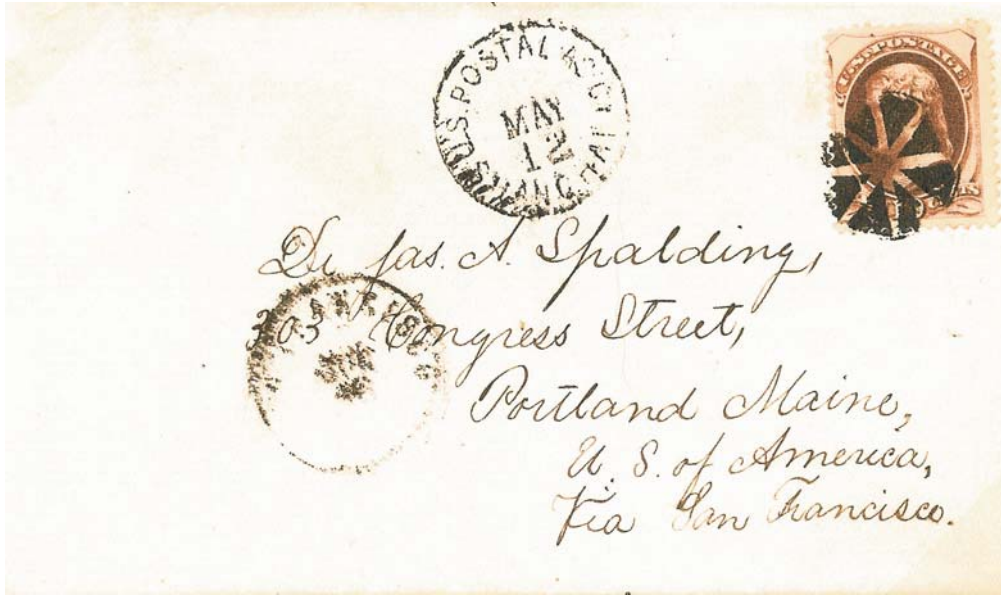 U.S. POSTAL AGCY
MAY
1
SHANGHAI
U.S. POSTAGE
Dr Jas. A. Spalding,
303 Congress Street,
Portland Maine,
U. S. of America,
Via San Francisco.